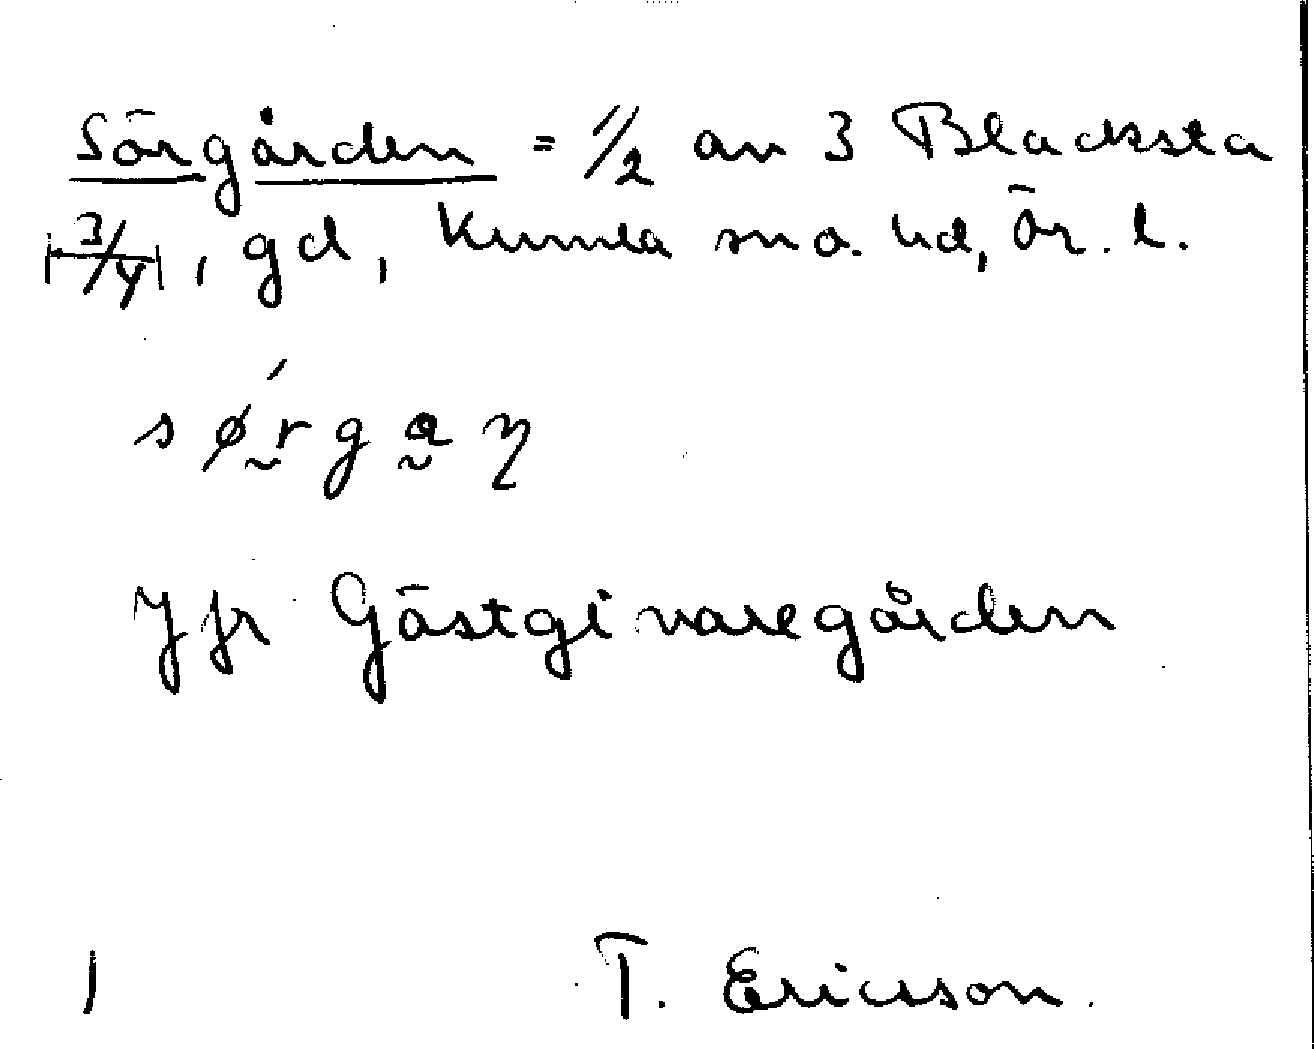 Sörgården = 1/2 av 3 Blacksta
|3/4|, gd, Kumla sn o. hd, Ör. l.
sǿrgaŋ
Jfr Gästgivaregården
1 T. Ericsson.